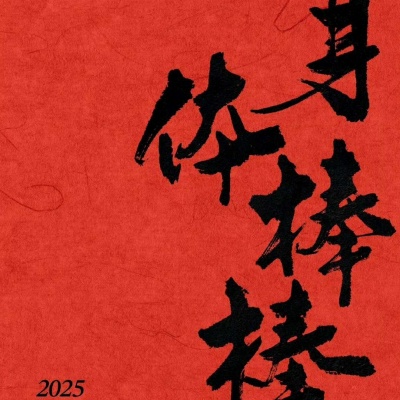 身
体
棒
棒
2025